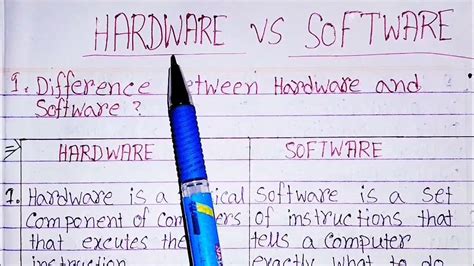 HARDWARE VS SOFTWARE
1. Difference between Hardware and
Software ?
⇒ HARDWARE SOFTWARE
1. Hardware is a
component of
that excutes the
instruction
Software is a set
of instructions that
tells a computer
exactly what to do